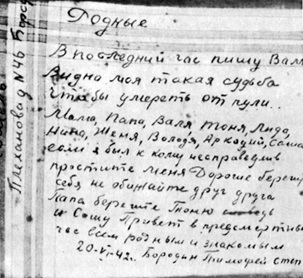 Родные
В последний час пишу Вам
Видно моя такая судьба
Чтобы умереть от пули..
Мама, Папа, Валя Тоня, Лида,
Нина, Женя, Володя, Аркадий, Саша
если я был к кому несправедлив
простите меня Дорогие береги
себя не обижайте друг друга
Папа берегите Тоню
и Сашу Привет в предсмертный
час всем родным и знакомым
20-VI-42г. Бородин Тимофей Степ
Плеханова д N46 Боро